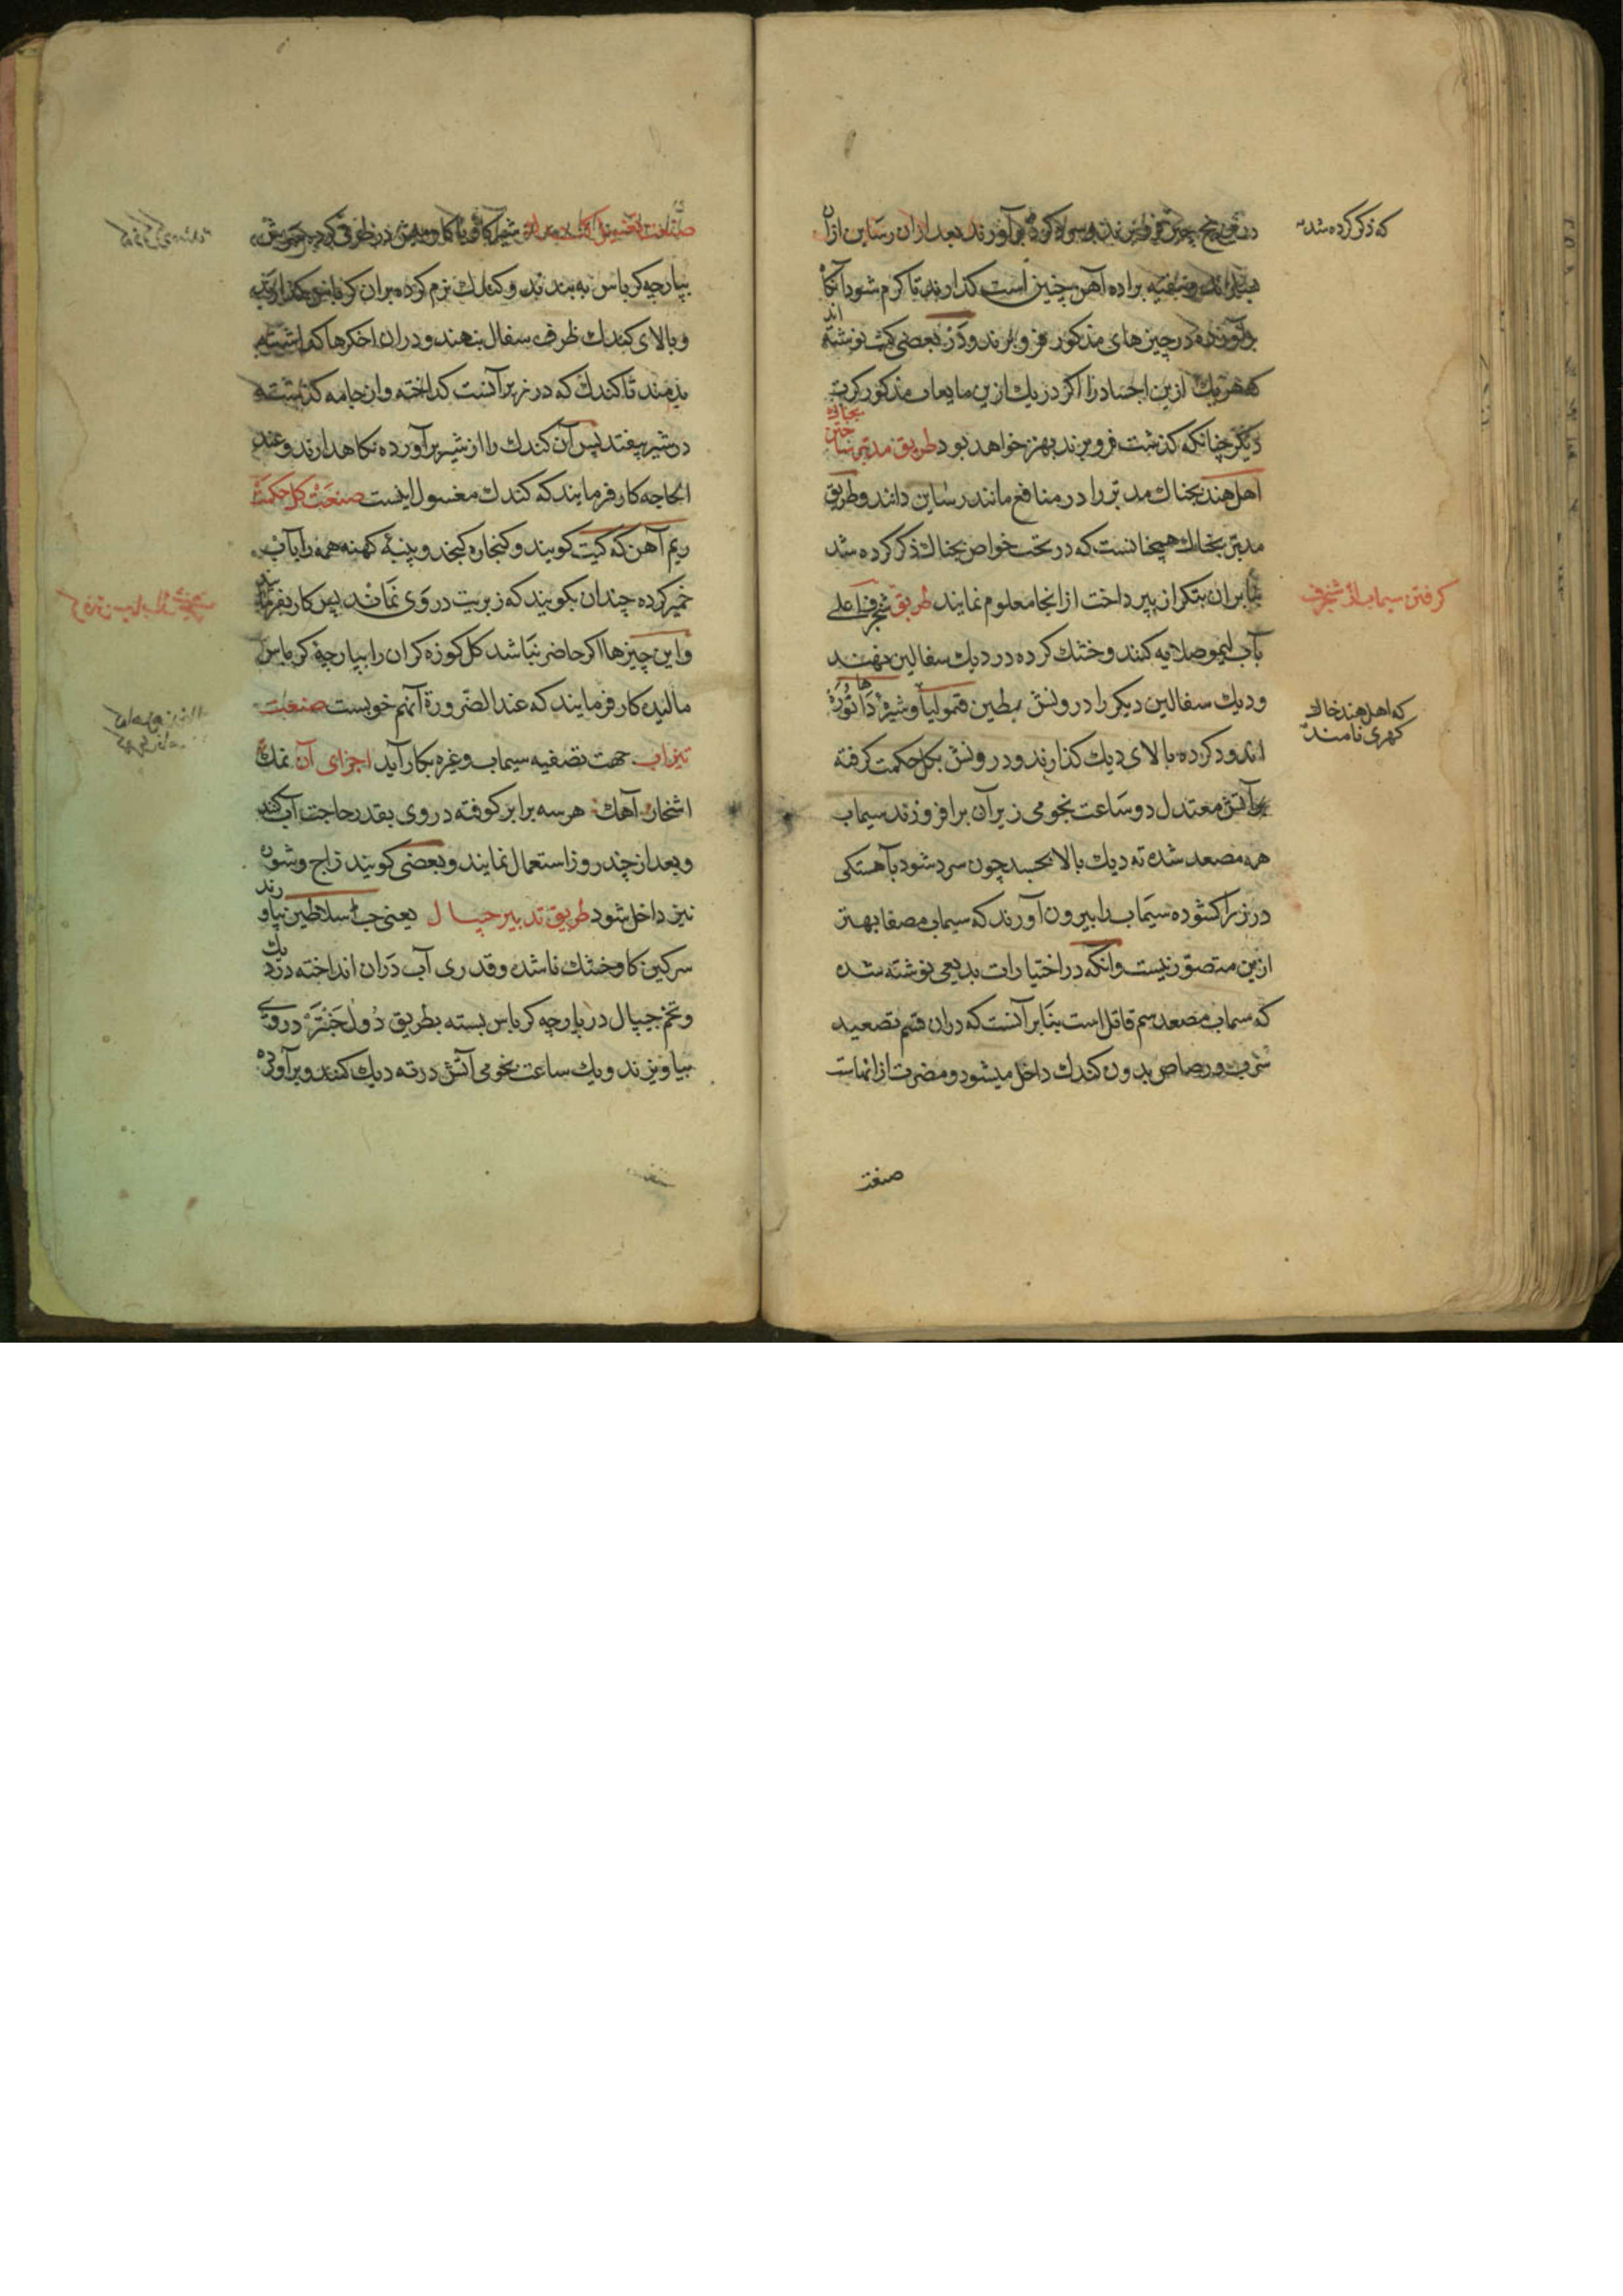 که ذکر کرده شد
در هر پنج چیز فرو برند و سرد کرده برآورند بعد ازان رساین ازان
بسازند و تصفیه براده آهن چنین است کذارند تا کرم شود آنکاه
برآورده در چیزهای مذکور فرو برند و در بعضی کتب نوشته اند
که هر یک ازین اجساد را اکر در یک ازین مایعات مذکور کرت
دیکر چنانکه کذشت فرو برند بهتر خواهد بود طریق مدبر ساختن بجناک
اهل هند بجناک مدبر را در منافع مانند رساین دانند و طریق
مدبر بجناک همچنانست که در تحت خواص بجناک ذکر کرده شد
بنابران بتکرار نپرداخت از انجا معلوم نمایند طریق شنجرف اعلی
کرفتن سیماب از شنجرف
بآب لیمو صلایه کنند و خشک کرده در دیک سفالین نهند
و دیک سفالین دیکر را درونش بطین قیمولیا و شیره داتوره‌ها
که اهل هند خاک
کهری نامند
اندود کرده بالای دیک کذارند و درونش بکل حکمت کرفته
بآتش معتدل دو ساعت نجومی زیر آن برافروزند سیماب
همه مصعد شده ته دیک بالا بچسبد چون سرد شود بآهستکی
درز را کشوده سیماب را بیرون آورند که سیماب مصفا بهتر
ازین متصور نیست و انکه در اختیارات بدیعی نوشته شده
که سیماب مصعد سم قاتل است بنابر آنست که دران قسم تصعید
سرب و رصاص بدون کندک داخل میشود و مضرت از انهاست
صنعت
صنعت تغسیل کندک شیر کاو یا کاومیش در ظرفی کرده سرش
بپارچه کرباس به بندند و کندک نرم کرده بران کرباس کذارند
و بالای کندک ظرف سفال بنهند و دران اخکرها کذاشته
بدمند تا کندک که در زیر آنست کداخته و ازان جامه کذشته
در شیر بیفتد پس آن کندک را از شیر برآورده نکاه دارند و عند
الحاجه کار فرمایند که کندک مغسول اینست صنعت کل حکمت
ریم آهن که کیت کویند و کنجاره کنجد و پنبهٔ کهنه همه را بآب
خمیر کرده چندان بکوبند که زبریت در وی نماند پس کار بفرمایند
و این چیزها اکر حاضر نباشد کل کوزه کران را بپارچهٔ کرباس
مالیده کار فرمایند که عند الضرورة آنهم خوبست صنعت
تیزاب جهت تصفیه سیماب و غیره بکار آید اجزای آن نمک
اشخار آهک هر سه برابر کوفته در وی بقدر حاجت آب کنند
و بعد از چند روز استعمال نمایند و بعضی کویند زاج و شوره
نیز داخل شود طریق تدبیر جیپال یعنی حب السلاطین بیاورند
سرکین کاو خشک ناشده و قدری آب دران انداخته در دیک
و تخم جیپال در پارچه کرباس بسته بطریق دول جنتر در وی
بیاویزند و یک ساعت نجومی آتش در ته دیک کنند و برآورده